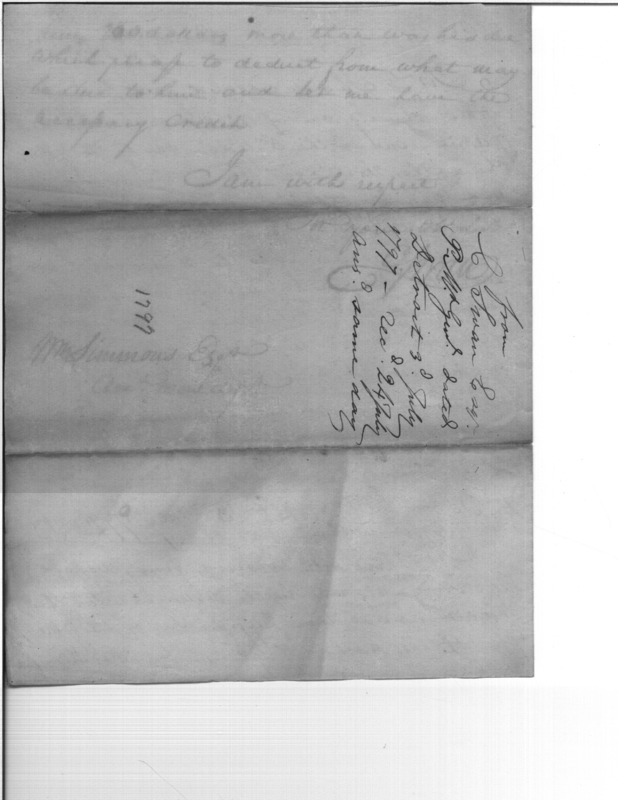 dollars more than was his due
Which please to deduct from what may
be due to him and let me have the
necessary Credit
I am with respect
Wm Simmons Esqr
1797
from
C Swan Esqr.
P. M. Genl. dated
Detroit 3d July
1797 - Rec. 24 July
Ansd. same day